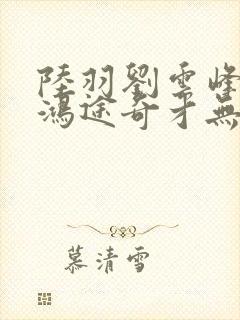 陸羽劉雲峰
鴻途奇才無
慕清雪